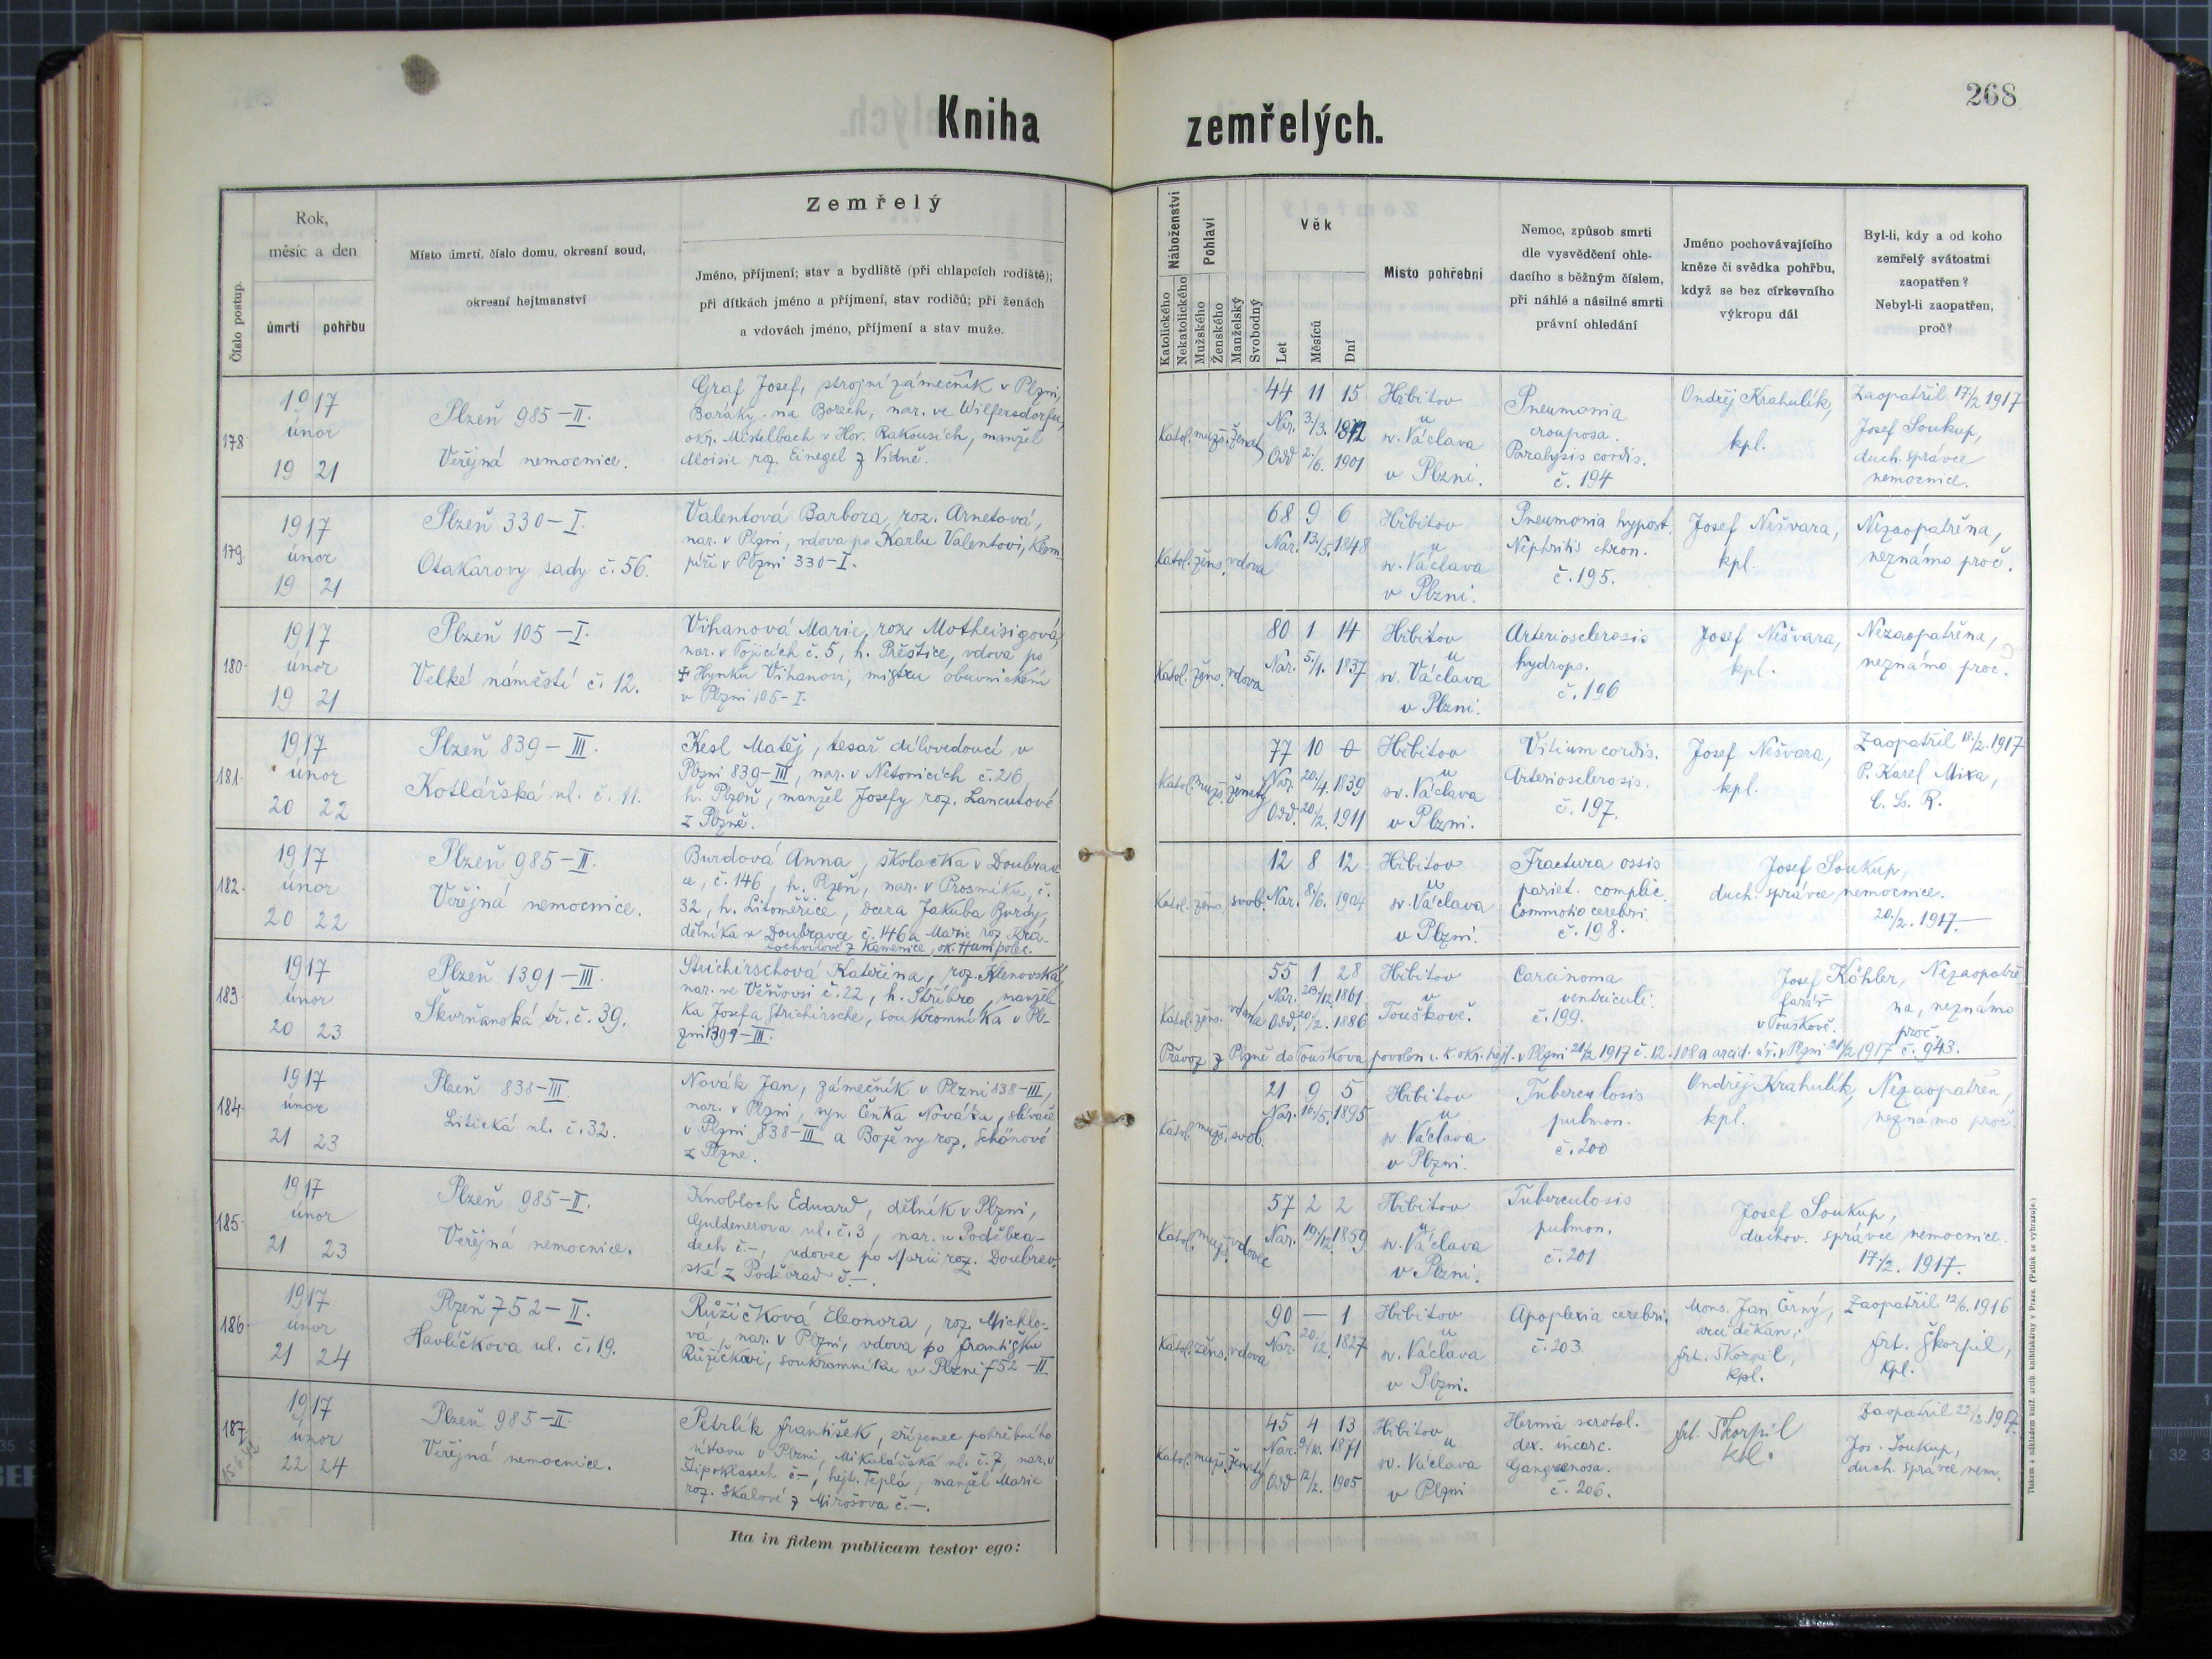 268
Kniha zemřelých.
Číslo postup.
Rok,
měsíc a den
úmrtí
pohřbu
Místo úmrtí, číslo domu, okresní soud,
okresní hejtmanství
Zemřelý
Jméno, příjmení; stav a bydliště (při chlapcích rodiště);
při dítkách jméno a příjmení, stav rodičů; při ženách
a vdovách jméno, příjmení a stav muže.
Náboženství
Katolického
Nekatolického
Pohlaví
Mužského
Ženského
Manželský
Svobodný
Věk
Let
Měsíců
Dní
Místo pohřební
Nemoc, způsob smrti
dle vysvědčení ohle-
dacího s běžným číslem,
při náhlé a násilné smrti
právní ohledání
Jméno pochovávajícího
kněze či svědka pohřbu,
když se bez církevního
výkropu dál
Byl-li, kdy a od koho
zemřelý svátostmi
zaopatřen?
Nebyl-li zaopatřen,
proč?
178.
1917
únor
19 21
Plzeň 985-II.
Veřejná nemocnice.
Graf Josef, strojní zámečník v Plzni,
Baraky na Borech, nar. ve Wilfersdorfu,
okr. Mistelbach v Hor. Rakousích, manžel
Aloisie roz. Einegel z Vídně.
Katol. muž. ženatý
44 11 15
Nar. 3./3. 1872
Odd. 2./6. 1901
Hřbitov
u
sv. Václava
v Plzni.
Pneumonia
crouposa.
Paralysis cordis.
č. 194
Ondřej Krahulík,
kpl.
Zaopatřil 17/2 1917
Josef Soukup,
duch. správce
nemocnice.
179.
1917
únor
19 21
Plzeň 330-I.
Otakarovy sady č. 56.
Valentová Barbora, roz. Arnetová,
nar. v Plzni, vdova po Karlu Valentovi, klem-
píři v Plzni 330-I.
Katol. žens. vdova
68 9 6
Nar. 13./5. 1848
Hřbitov
u
sv. Václava
v Plzni.
Pneumonia hypost.
Nephritis chron.
č. 195.
Josef Nešvara,
kpl.
Nezaopatřena,
neznámo proč.
180.
1917
únor
19 21
Plzeň 105-I.
Velké náměstí č. 12.
Vihanová Marie, roz. Motheisigová,
nar. v Pojicích č. 5, h. Přeštice, vdova po
‡ Hynku Vihanovi, mistru obuvnickém
v Plzni 105-I.
Katol. žens. vdova
80 1 14
Nar. 5./1. 1837
Hřbitov
u
sv. Václava
v Plzni.
Arteriosclerosis
hydrops.
č. 196
Josef Nešvara,
kpl.
Nezaopatřena,
neznámo proč.
181.
1917
únor
20 22
Plzeň 839-III.
Kotlářská ul. č. 11.
Kesl Matěj, tesař dílovedoucí v
Plzni 839-III, nar. v Netonicích č. 26
h. Plzeň, manžel Josefy roz. Lancutové
z Plzně.
Katol. muž. ženatý
77 10 0
Nar. 20./4. 1839
Odd. 20./2. 1911
Hřbitov
u
sv. Václava
v Plzni.
Vitium cordis.
Arteriosclerosis.
č. 197.
Josef Nešvara,
kpl.
Zaopatřil 18./2. 1917
P. Karel Mixa,
C. Ss. R.
182.
1917
únor
20 22
Plzeň 985-II.
Veřejná nemocnice.
Burdová Anna, školačka v Doubrav-
ce, č. 146, h. Plzeň, nar. v Prosmíku, č.
32, h. Litoměřice, dcera Jakuba Burdy,
dělníka v Doubravce č. 146 a Marie roz. Krá-
tochvílové z Kamenice, ok. Humpolec.
Katol. žens. svob.
12 8 12
Nar. 8./6. 1904
Hřbitov
u
sv. Václava
v Plzni.
Fractura ossis
pariet. complic.
Commotio cerebri.
č. 198.
Josef Soukup,
duch. správce nemocnice.
20./2. 1917.
183.
1917
únor
20 23
Plzeň 1391-III.
Škvrňanská tř. č. 39.
Strichirschová Kateřina, roz. Klenovská,
nar. ve Věňovsi č. 22, h. Stříbro, manžel-
ka Josefa Strichirsche, soukromníka v Pl-
zni 1391-III.
Katol. žens. vdaná
55 1 28
Nar. 23./12. 1861
Odd. 20./2. 1886
Hřbitov
v
Touškově.
Carcinoma
ventriculi.
č. 199.
Josef Köhler,
farář
v Touškově.
Nezaopatře-
na, neznámo
proč.
Převoz z Plzně do Touškova povolen c. k. okr. hejt. v Plzni 21/2 1917 č. 12.108 a arcid. úř. v Plzni 21/2 1917 č. 943.
184.
1917
únor
21 23
Plzeň 838-III.
Litická ul. č. 32.
Novák Jan, zámečník v Plzni 838-III,
nar. v Plzni, syn Čeňka Nováka, slévače
v Plzni 838-III a Boženy roz. Schönové
z Plzně.
Katol. muž. svob.
21 9 5
Nar. 16./5. 1895
Hřbitov
u
sv. Václava
v Plzni.
Tuberculosis
pulmon.
č. 200
Ondřej Krahulík,
kpl.
Nezaopatřen,
neznámo proč.
185.
1917
únor
21 23
Plzeň 985-II.
Veřejná nemocnice.
Knobloch Eduard, dělník v Plzni,
Guldenerova ul. č. 3, nar. v Poděbra-
dech č.-, vdovec po Marii roz. Doubrav-
ské z Poděbrad č.-.
Katol. muž. vdovec
57 2 2
Nar. 19./12. 1859
Hřbitov
u
sv. Václava
v Plzni.
Tuberculosis
pulmon.
č. 201
Josef Soukup,
duchov. správce nemocnice.
17./2. 1917.
186.
1917
únor
21 24
Plzeň 752-II.
Havlíčkova ul. č. 19.
Růžičková Eleonora, roz. Michlo-
vá, nar. v Plzni, vdova po Františku
Růžičkovi, soukromníku v Plzni 752-II.
Katol. žens. vdova
90 — 1
Nar. 20./12. 1827
Hřbitov
u
sv. Václava
v Plzni.
Apoplexia cerebri.
č. 203.
Mons. Jan Černý,
arciděkan,
frt. Škorpil,
kpl.
Zaopatřil 12/6. 1916
frt. Škorpil,
kpl.
187.
1917
únor
22 24
Plzeň 985-II.
Veřejná nemocnice.
Petrlík František, zřízenec pohřebního
ústavu v Plzni, Mikulášská ul. č. 7, nar. v
Štipoklasech č.-, hejt. Teplá, manžel Marie
roz. Skalové z Mirošova č.-.
Katol. muž. ženatý
45 4 13
Nar. 9./10. 1871
Odd. 12/2. 1905
Hřbitov
u
sv. Václava
v Plzni
Hernia scrotal.
dex. incarc.
Gangraenosa.
č. 206.
frt. Škorpil
kpl.
Zaopatřil 22/2. 1917.
Jos. Soukup,
duch. správce nem.
Ita in fidem publicam testor ego: